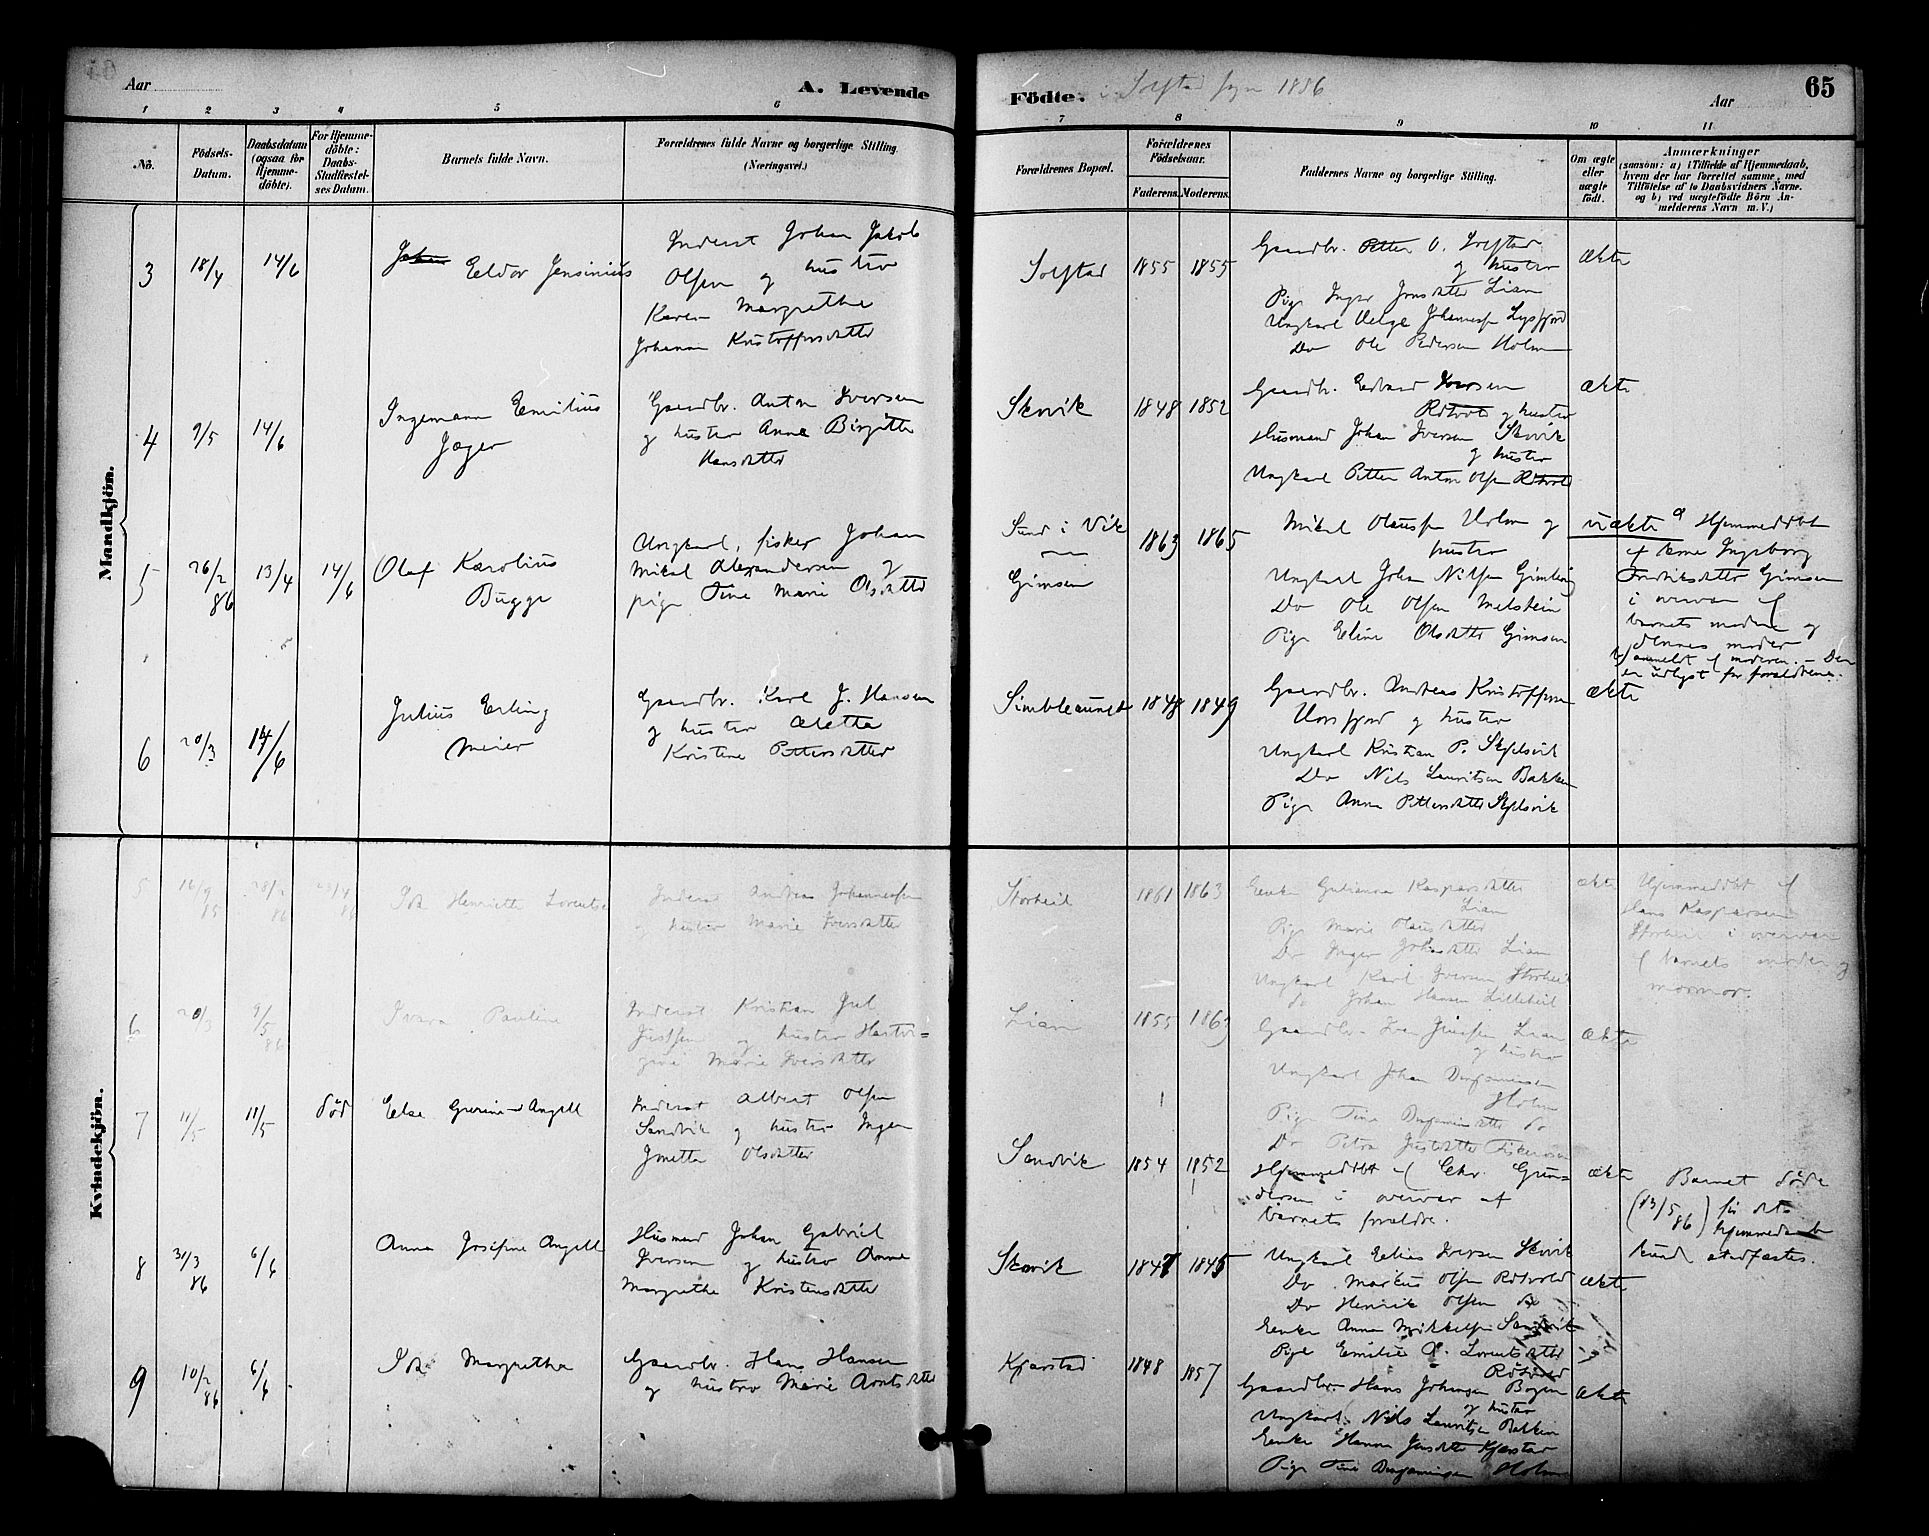 Aar
A. Levende
Födte. i Solstad sogn 1886
Aar
65
1 2 3 4 5 6 7 8 9 10 11
No.
Födsels-Datum.
Daabsdatum (ogsaa for Hjemme-döbte).
For Hjemme-döbte: Daabs-Stadfæstel-ses Datum.
Barnets fulde Navn.
Forældrenes fulde Navne og borgerlige Stilling.
(Næringsvei.)
Forældrenes Bopæl.
Forældrenes Födselsaar.
Faderens. Moderens.
Faddernes Navne og borgerlige Stilling.
Om ægte eller uægte födt.
Anmærkninger
(saasom: a) i Tilfælde af Hjemmedaab,
hvem der har forrettet samme, med
Tilföielse af to Daabsvidners Navne.
og b) ved uægtefödte Börn An-
melderens Navn m.V.)
Mandkjön.
3 18/4 14/6
Johan Eeldor Jensinius
Inderst Johan Jakob
Olsen og hustro
Karen Margrethe
Johanna Kristoffersdatter
Solstad 1855 1855
Gaardbr. Petter O. Solstad
og hustro
Pige Inger Jensdatter Lian
Ungkarl Helge Johannessen
Do Ole Pedersen Holm
ækte
4 9/5 14/6
Ingemann Emilius
Jæger
Gaardbr. Anton Iversen
og hustro Anne Birgitte
Hansdatter
Skovik 1848 1852
Gaardbr. Edvard Iversen
Rötvold og hustro
Husmand Johan Iversen Skovik
og hustro
Ungkarl Petter Anton Olsen Rötvold
ækte
5 26/2 86 13/4 14/6
Olaf Karolius
Bugge
Ungkarl, fisker Johan
Mikal Alexandersen og
pige Tine Marie Olsdatter
Sund i Vik
Gimsen
1863 1865
Mikal Olaussen Holm og
hustro
Ungkarl Johan Nilsen Gimling
Do Ole Olsen Melstein
Pige Eline Olsdatter Gimsen
uækte
a Hjemmedöbt
af Ingeborg
Fredriksdatter Gimsen
i overvær af
barnets moder og
dennes moder
b) anmeldt af moderen. – Der
er udlyst for forældrene.
6 20/3 14/6
Julius Erling
Meier
Gaardbr. Karl J. Hansen
og hustro Aletta
Kristine Pettersdatter
1848 1849
Gaardbr. Andreas Kristoffersen
Horsfjord og hustro
Ungkarl Kristian P. Skjelsvik
Do Nils Lauritsen Bakken
Pige Anna Pettersdatter Skjelsvik
ækte
Kvindekjön.
5 16/9 85 28/2 86 23/4 86
Ida Henriette Lorentse
Inderst Andreas Johannessen
og hustro Marie Iversdatter
Storheil 1861 1863
Enke Gulianna Kaspersdatter
Lian
Pige Marie Olausdatter
Do Inger Johsdatter Lian
Ungkarl Karl Iversen Storheil
do Johan Hansen Lilleheil
ækte
Hjemmedöbt af
Hans Kaspersen
Storheil i overvær
af barnets moder og
mormor.
6 20/3 9/5 86
Ivara Pauline
Inderst Kristian Jul
Justsen og hustro Hartvi=
gine Marie Iversdatter
Lian 1855 1863
Gaardbr. Iver Jensen Lian
og hustro
Ungkarl Johan Benjaminsen
Holm
Pige Tine Benjaminsdatter do
Do Petra Justsdatter Fiskerosen
ækte
7 11/5 11/5 död
Else Grurine Angell
Inderst Albert Olsen
Sandvik og hustro Inger
Jonetta Olsdatter
Sandvik 1854 1852
Hjemmedöbt af Chr. Gun=
dersen i overvær af
barnets forældre.
ækte
Barnet döde
(13/5 86) för dets
hjemmedaab
kund stadfæstes.
8 31/3 86 6/6
Anna Josefine Angell
Husmand Johan Gabriel
Iversen og hustro Anne
Margrethe Kristensdatter
Skovik 1847 1845
Ungkarl Elias Iversen Skovik
Do Markus Olsen Rötvold
Do Henrik Olsen do
Enke Anna Mikkelsen Sandvik
Pige Emilie O. Lorentsdatter
Rötvold
ækte
9 10/2 86 6/6
Ida Margrethe
Gaardbr. Hans Hansen
og hustro Marie Arntsdatter
Kjærstad 1848 1857
Gaardbr. Hans Johansen Bogen
og hustro
Ungkarl Nils Lauritsen Bakken
Enke Hanna Jensdatter Kjærstad
Pige Tine Benjaminsen Holm
ækte